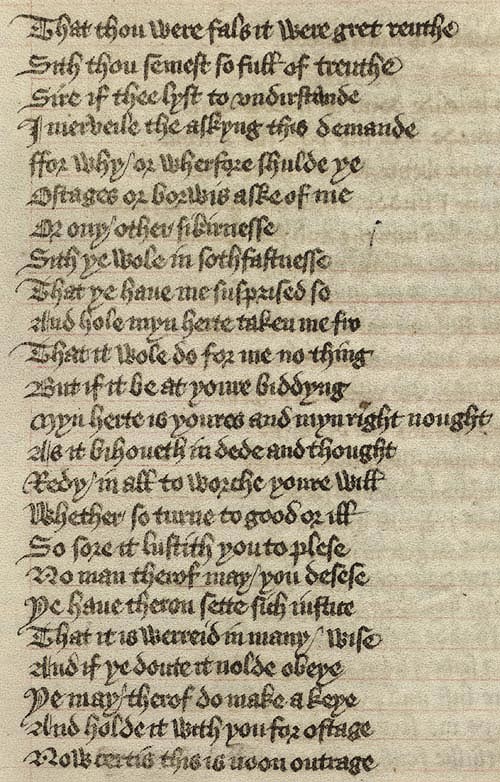 That thou were fals it were gret reuthe
Sith thou semest so full of treuthe
Sire if thee lyst to vndirstande
I merveile the askyng this demande
ffor why/ or wherfore shulde ye
Ostages or borwis aske of me
Or ony/ other sikirnesse
Sith ye wole in sothfastnesse
That ye have me susprised so
And hole myn herte taken me fro
That it wole do for me no thing
But if it be at youre biddyng
Myn herte is youres and myn right nought
As it bihoueth in dede and thought
Redy/ in all to worche youre will
Whether so turne to good or ill
So sore it lustith you to plese
No man therof may/ you desese
Ye have theron sette sich iustice
That it is werreid in many/ wise
And if ye doute it nolde obeye
Ye may/ therof do make a keye
And holde it with you for ostage
Now certis this is noon outrage